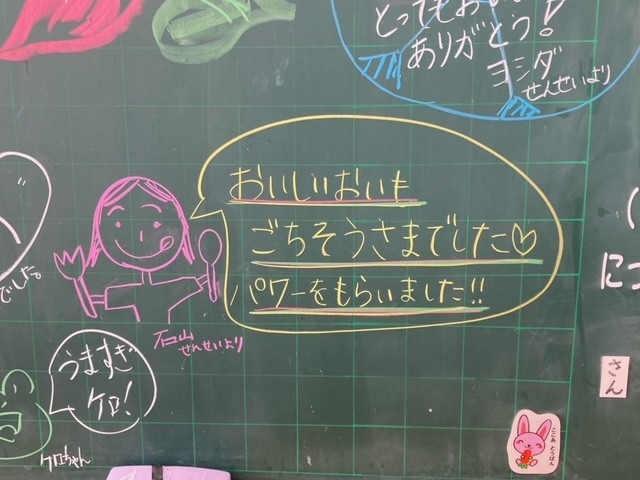 とってもおい
ありがとう!
ヨシダ
せんせいより
おいしいおいも
ごちそうさまでした♡
パワーをもらいました!!
石山
せんせいより
でした。
うますぎ
ケロ!
ケロちゃん
につ
さん